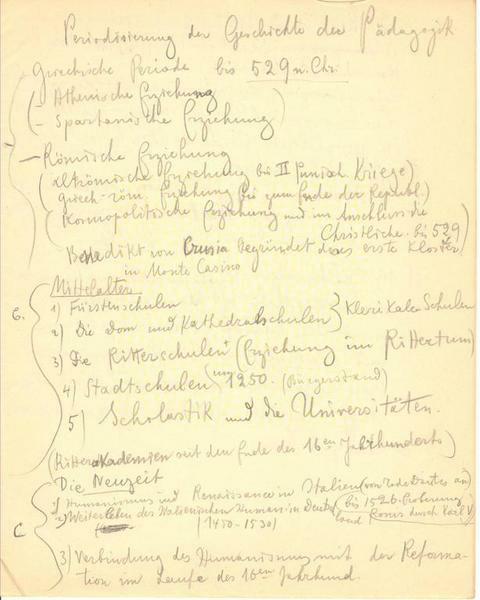 Periodisierung der Geschichte der Pädagogik
Griechische Periode bis 529 n. Chr.
(- Athenische Erziehung
(- Spartanische Erziehung)
- Römische Erziehung
(altrömische Erziehung bis II punisch. Kriege)
griech-röm. Erziehung bis zum Ende der Republ.)
(Kosmopolitische Erziehung und im Anschluss die
Christliche. bis 529)
Benedikt von begründet das erste Kloster
in Monte Casino
Mittelalter
1) Fürstenschulen
2) Die Dom und Kathedralschulen } Klerikale Schulen
3) Die Ritterschulen (Erziehung im Rittertum)
4) Stadtschulen (um 1250. (Bürgerstand)
5) Scholastik und die Universitäten.
(Ritterakademien seit dem Ende des 16en Jahrhunderts)
Die Neuzeit
1) Humanismus und Renaissance in Italien (von Dantes an
bis 1526. Eroberung
2) Weiterleben des Italienischen Human. in Deutschland
Roms durch Karl V)
(1450-1530)
C
3) Verbindung des Humanismus mit der Reforma-
tion im Laufe des 16en Jahrhund.